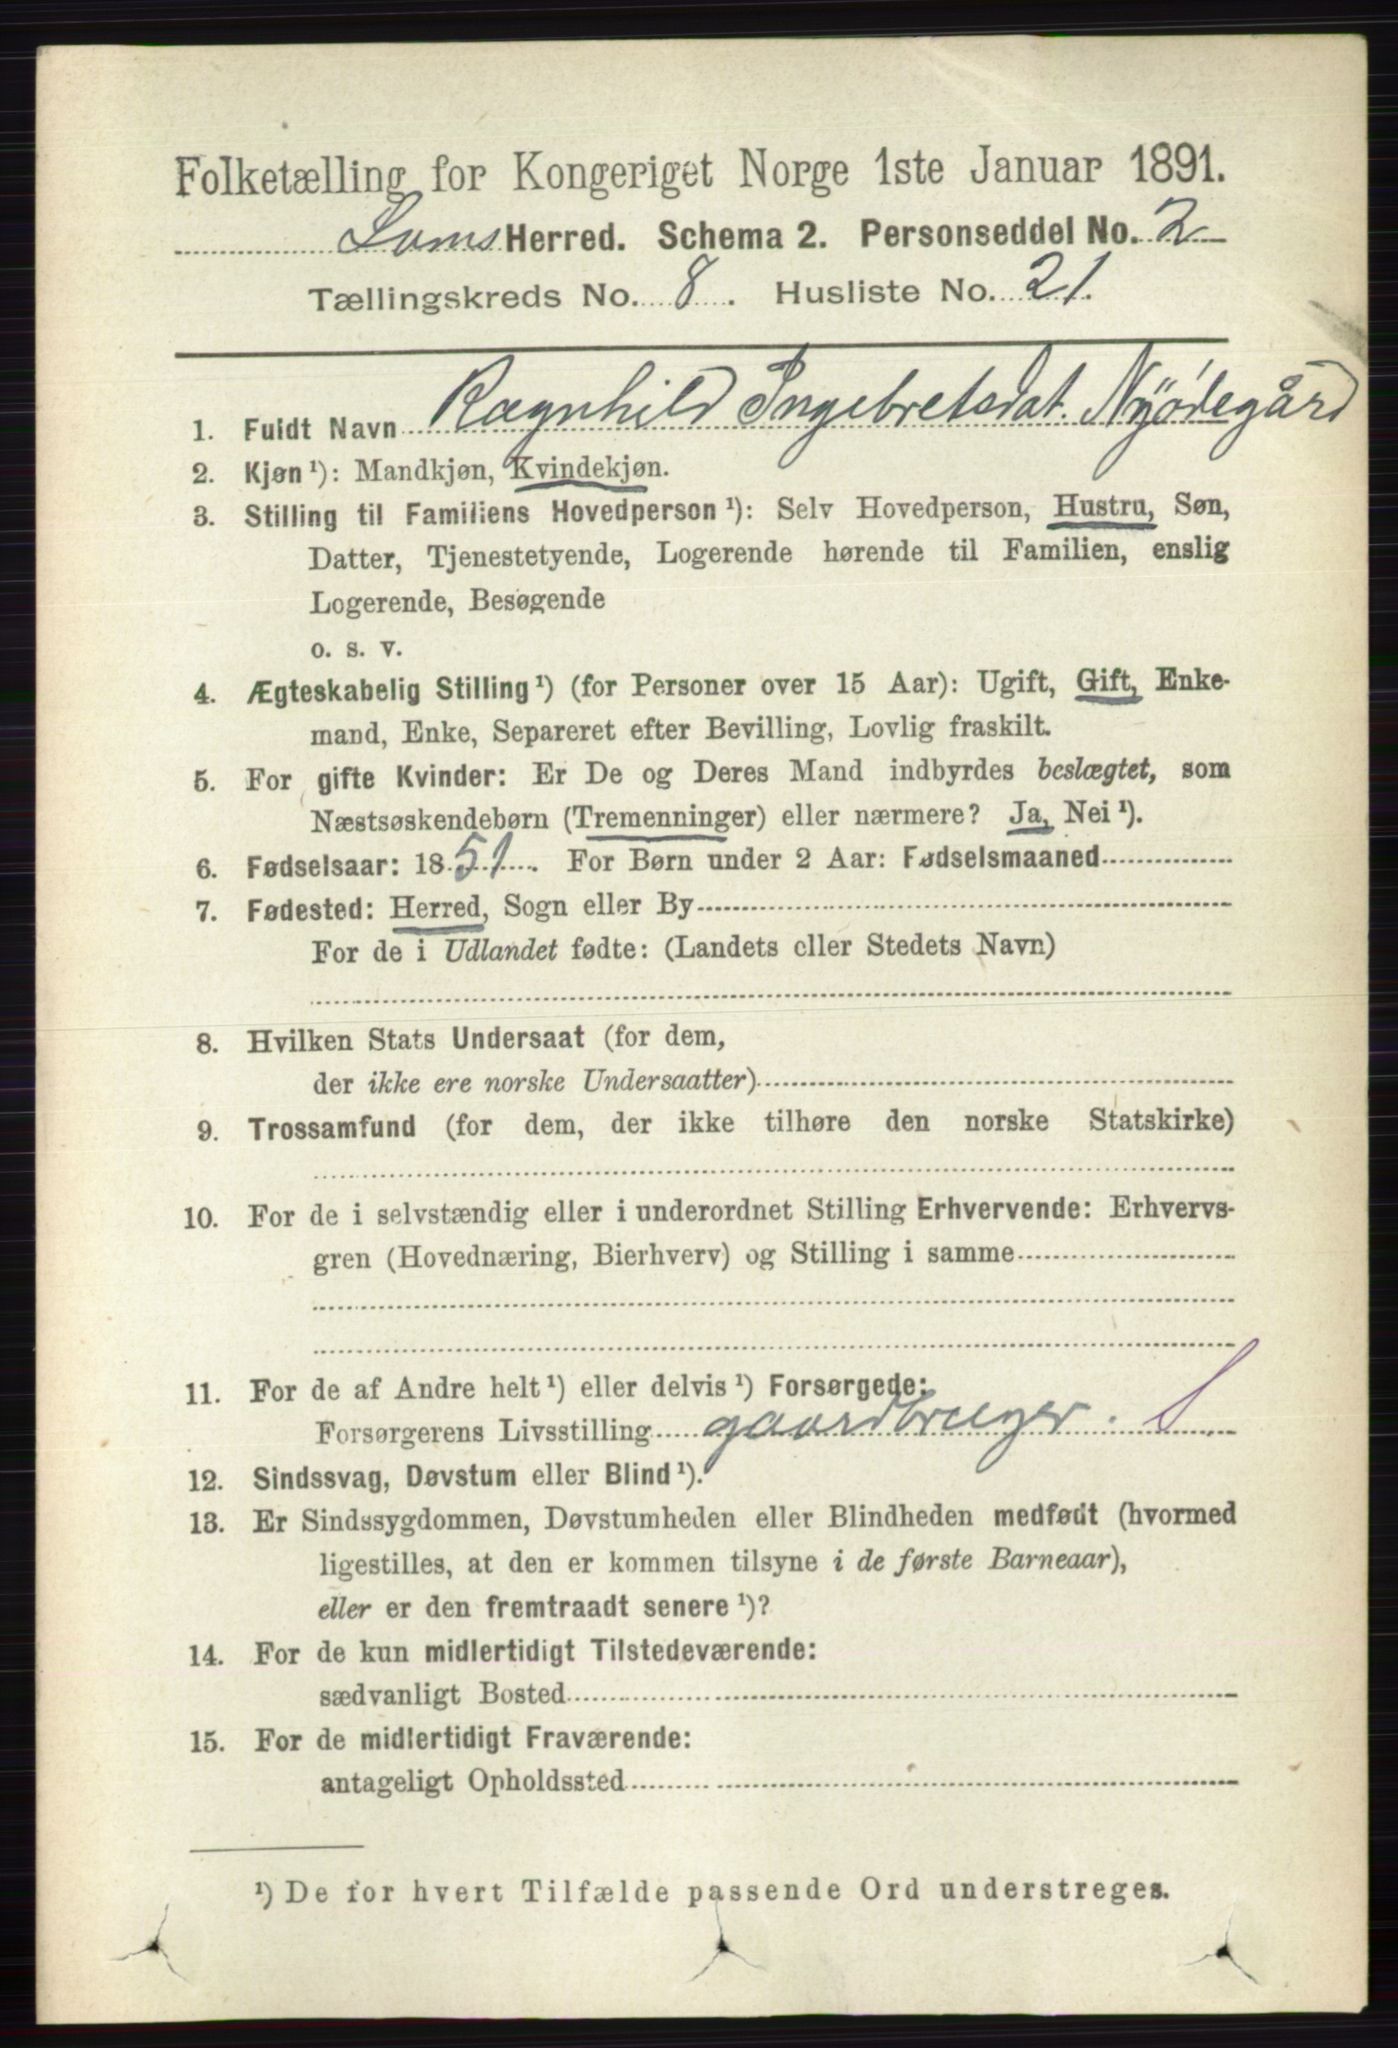 Folketælling for Kongeriget Norge 1ste Januar 1891.
Loms Herred. Schema 2. Personseddel No. 2
Tællingskreds No. 8. Husliste No. 21.
1. Fuldt Navn Ragnhild Ingebretsdat. Nyødegård
2. Kjøn¹): Mandkjøn, Kvindekjøn.
3. Stilling til Familiens Hovedperson¹): Selv Hovedperson, Hustru, Søn,
Datter, Tjenestetyende, Logerende hørende til Familien, enslig
Logerende, Besøgende
o. s. v.
4. Ægteskabelig Stilling¹) (for Personer over 15 Aar): Ugift, Gift, Enke-
mand, Enke, Separeret efter Bevilling, Lovlig fraskilt.
5. For gifte Kvinder: Er De og Deres Mand indbyrdes beslægtet, som
Næstsøskendebørn (Tremenninger) eller nærmere? Ja, Nei¹).
6. Fødselsaar: 1851. For Børn under 2 Aar: Fødselsmaaned
7. Fødested: Herred, Sogn eller By
For de i Udlandet fødte: (Landets eller Stedets Navn)
8. Hvilken Stats Undersaat (for dem,
der ikke ere norske Undersaatter)
9. Trossamfund (for dem, der ikke tilhøre den norske Statskirke)
10. For de i selvstændig eller i underordnet Stilling Erhvervende: Erhvervs-
gren (Hovednæring, Bierhverv) og Stilling i samme
11. For de af Andre helt¹) eller delvis¹) Forsørgede:
Forsørgerens Livsstilling gaardbruger. S
12. Sindssvag, Døvstum eller Blind¹).
13. Er Sindssygdommen, Døvstumheden eller Blindheden medfødt (hvormed
ligestilles, at den er kommen tilsyne i de første Barneaar),
eller er den fremtraadt senere¹)?
14. For de kun midlertidigt Tilstedeværende:
sædvanligt Bosted
15. For de midlertidigt Fraværende:
antageligt Opholdssted
¹) De for hvert Tilfælde passende Ord understreges.